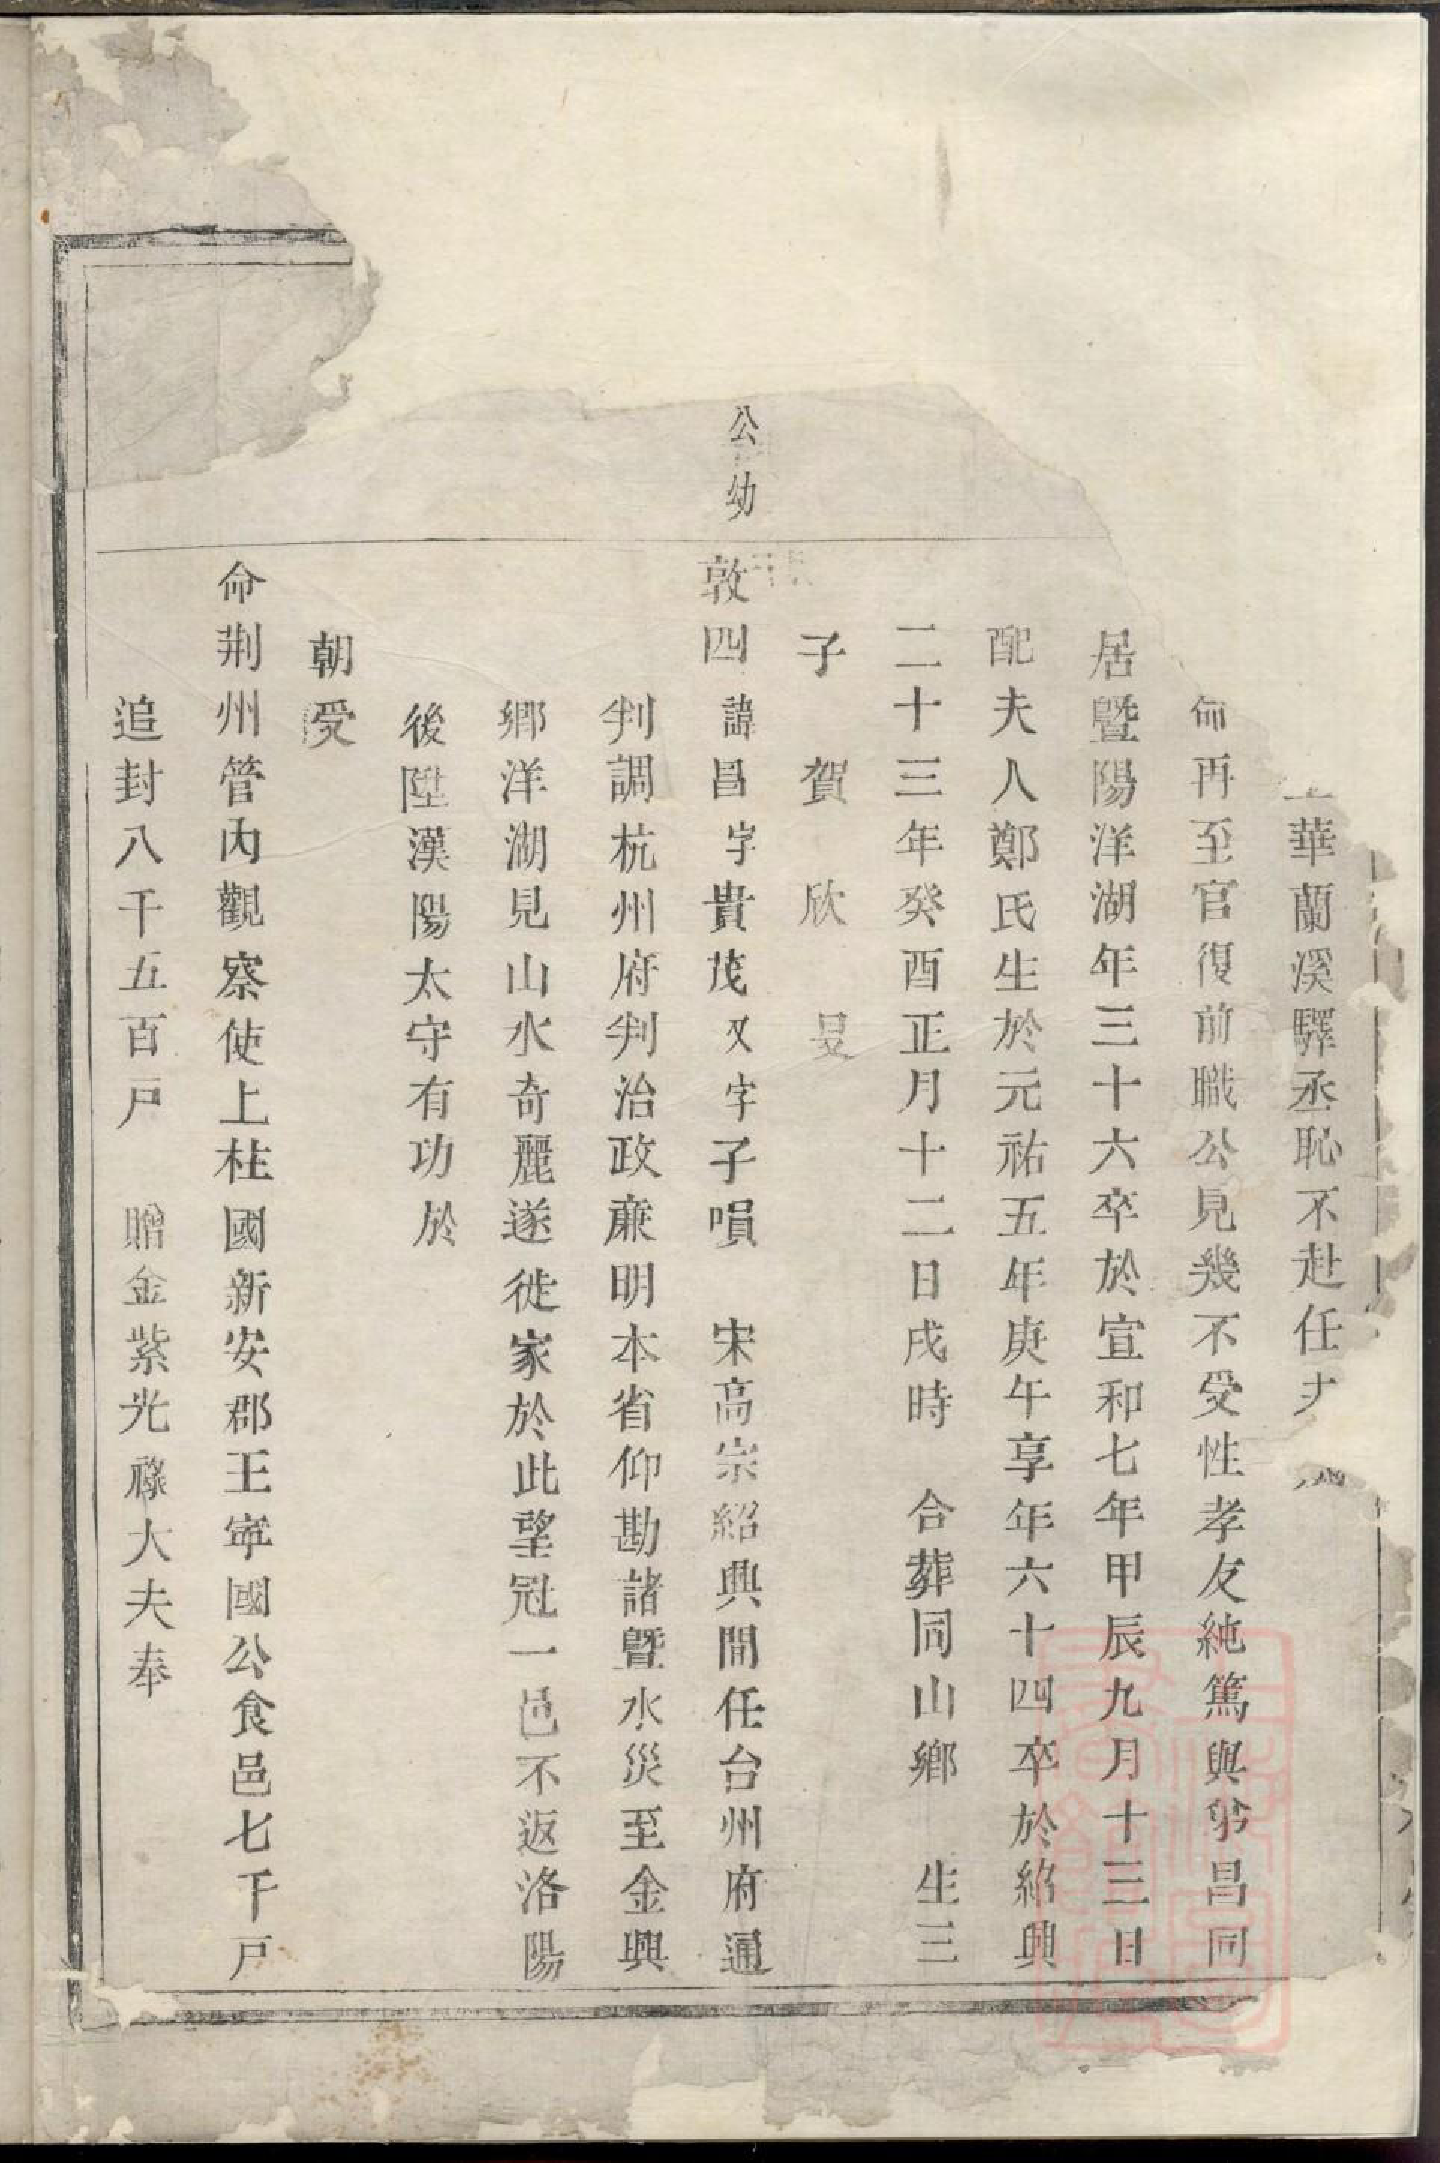 華蘭溪驛丞恥不赴任
命再至官復前職公見幾不受性孝友純篤與弟昌同
居暨陽洋湖年三十六卒於宣和七年甲辰九月十三日
配夫人鄭氏生於元祐五年庚午享年六十四卒於紹興
二十三年癸酉正月十二日戌時 合葬同山鄉 生三
子 賀 欣 旻
公幼
敦四諱昌字貴茂又字子嗊 宋高宗紹興間任台州府通
判調杭州府判治政亷明本省仰勘諸暨水災至金興
鄉洋湖見山水奇麗遂徙家於此望冠一邑不返洛陽
後陞漢陽太守有功於
朝受
命荆州管內觀察使上柱國新安郡王寧國公食邑七千戸
追封八千五百戸 贈金紫光祿大夫奉